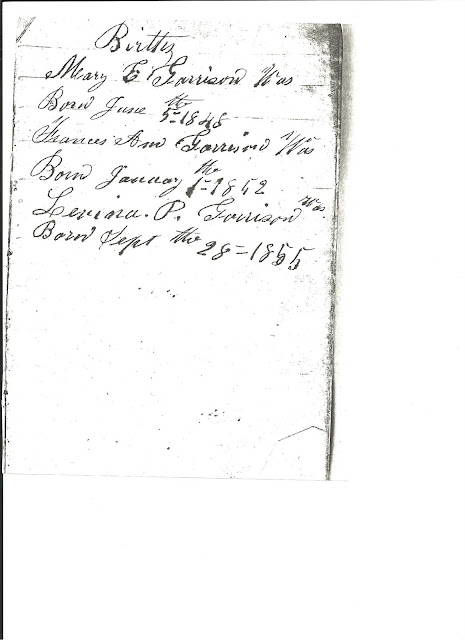 Births
Mary E Garrison Was
Born June the 5-1848
Frances Ann Garrison Was
Born January the 1-1852
Levina. P. Garrison Was.
Born Sept the 28-1855